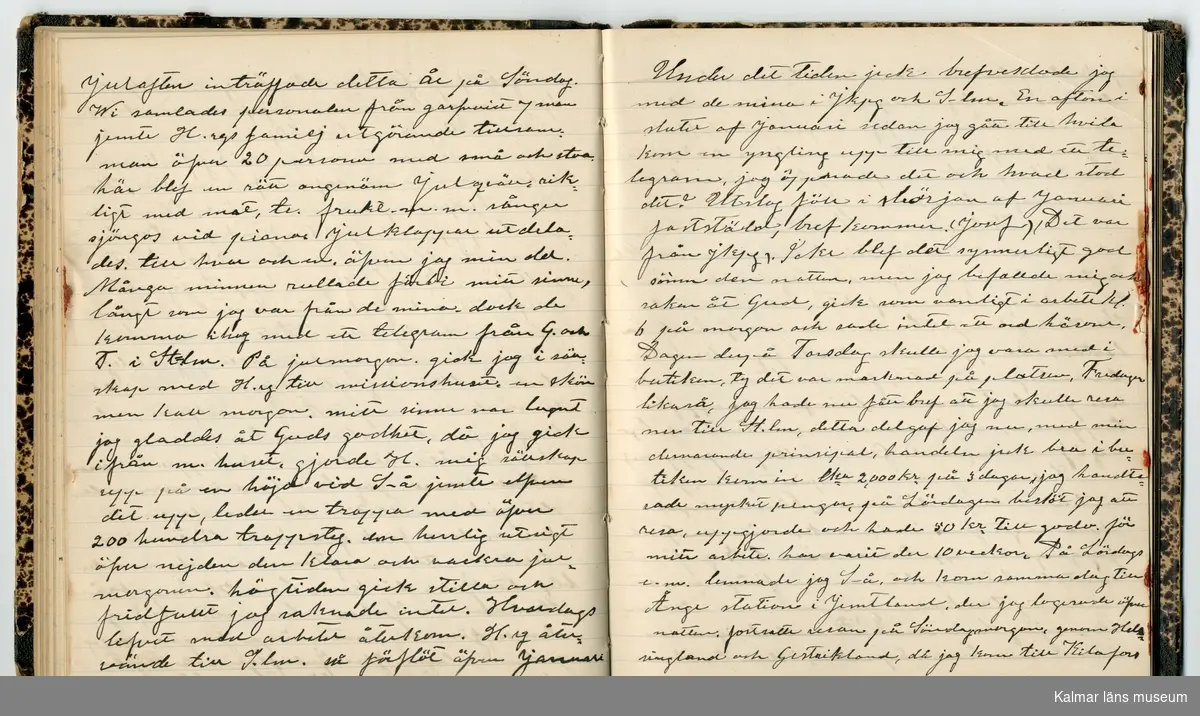 Julafton inträffade detta År på Söndag.
Wi samlades personalen från garfveriet
jemte H.rgs familj utgörande tillsam-
man öfver 20 persona med små och stora,
här blef en rätt angenäm Julgröt, rik-
ligt med mat, te. frukt. m. m. sånger
sjöngos vid piano, Julklappar utdela-
des. till hvar och en, äfven jag min del.
Många minnen rullade förbi mitt sinne,
långt som jag var från de mina. dock de
komma ihog med ett telegram från G. och
T. i St.lm. På julmorgon. gick jag i säll-
skap med H.rg till missionshuset. en skön
men kall morgon. mitt sinne var lugnt
jag gladdes åt Guds godhet, då jag gick
ifrån m. huset, gjorde H. mig sällskap
upp på en höjd vid S-å jemte elfven
dit upp, leder en trappa med öfver
200 hundra trappsteg. en herrlig utsigt
öfver nejden den klara och vackra jul-
morgonen. högtiden gick stilla och
fridfullt jag saknade intet. Hvardags
lifvet med arbete återkom. H.rg åter-
vände till S.lm. så förflöt äfven Januari
Under det tiden gick brefvexlade jag
med de mina i Jkpg och S.lm. En afton i
slutet af Januari sedan jag gått till hvila
kom en yngling upp till mig med ett te-
legram, jag öppnade det och hvad stod
det? Utslag föll i början af Januari
fastställd, bref kommer, (Josef), Det var
från Jkpg. Icke blef det synnerligt god
sömn den natten, men jag befallde mig och
saken åt Gud, gick som vanligt i arbete kl.
6 på morgon och sade intet ett ord härom.
Dagen derpå Torsdag skulle jag vara med i
butiken, ty det var marknad på platsen, Fredagen
likaså, jag hade nu fått bref att jag skulle resa
ner till St.lm, detta delgaf jag nu, med min
dervarande principal, handeln gick bra i bu-
tiken kom in Cka 2,000 kr. på 3 dagar, jag handte-
rade mycket pengar, på Lördagen beslöt jag att
resa, uppgjorde och hade 80 kr. till godo. för
mitt arbete. har varit der 10 veckor. På Lördags
e.m. lemnade jag S-å, och kom samma dag till
Ånge station i Jemtland, der jag logerade öfver
natten. fortsatte resan på Söndagsmorgon, genom Hel-
singland och Gestrikland, då jag kom till Kilafors
Kalmar läns museum